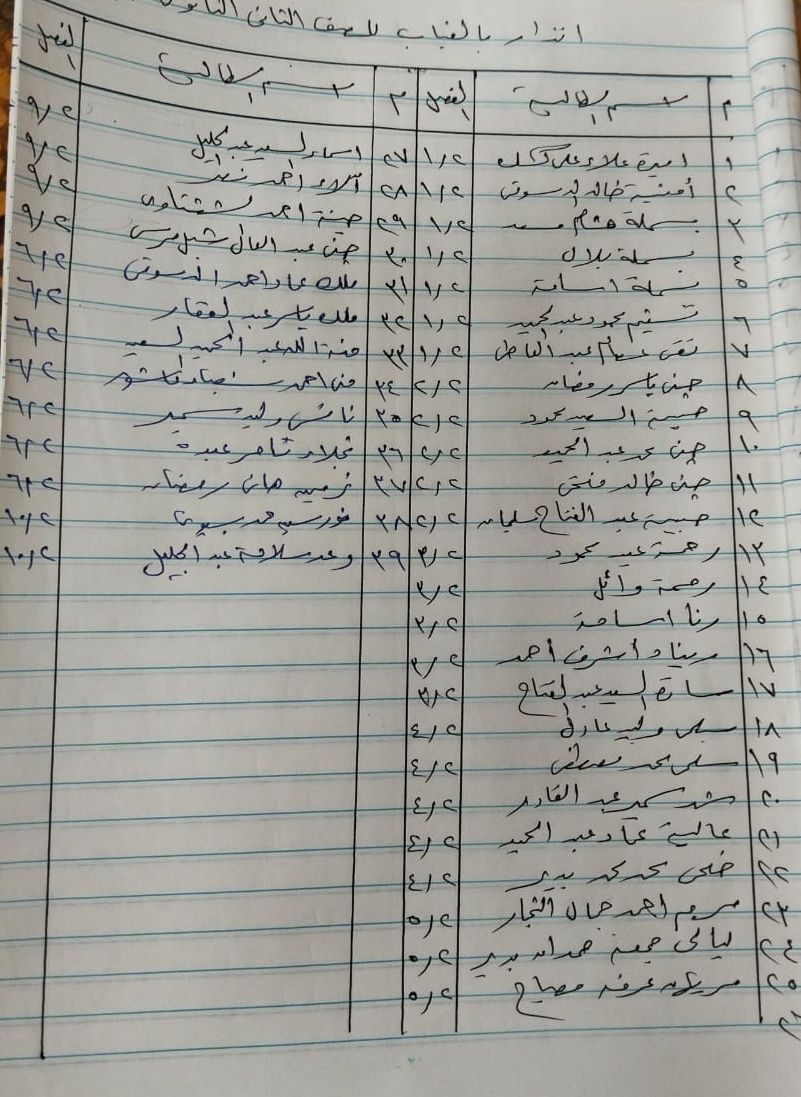 انذار بالغياب للصف الثانى الثانوى
م اسم الطالبة الفصل م اسم الطالبة الفصل
١ اميرة علاء على ١/٢ ٢٧ اسماء السيد عبد الجليل ٩/٢
٢ أمنية خالد الدسوقى ١/٢ ٢٨ آلاء احمد ٩/٢
٣ بسملة هشام مسعد ١/٢ ٢٩ احمد ٩/٢
٤ بسملة بلال ١/٢ ٣٠ جنى عبد العال ٩/٢
٥ بسملة اسامة ١/٢ ٣١ ملك عماد احمد الدسوقى ٦/٢
٦ تسنيم محمود عبد الحميد ١/٢ ٣٢ ملك ياسر عبد الغفار ٦/٢
٧ تقى عصام عبد العاطى ١/٢ ٣٣ منة الله عبد الحميد السعيد ٦/٢
٨ جنى ياسر رمضان ٢/٢ ٣٤ منى احمد ٦/٢
٩ حبيبة السعيد محمود ٢/٢ ٣٥ وليد سمير ٦/٢
١٠ جنى محمد عبد الحميد ٢/٢ ٣٦ نجلاء تامر عبده ٦/٢
١١ جنى خالد فتحى ٢/٢ ٣٧ نرمين هانى رمضان ٦/٢
١٢ حبيبة عبد الفتاح سليمان ٢/٢ ٣٨ محمد بسيونى ١٠/٢
١٣ رحمة عيد محمود ٣/٢ ٣٩ وعد سلامة عبد الجليل ١٠/٢
١٤ رحمة وائل ٣/٢
١٥ رنا اسامة ٣/٢
١٦ ريناد أشرف احمد ٣/٢
١٧ سارة السيد عبد الفتاح ٣/٢
١٨ سلمى وليد عادل ٤/٢
١٩ سلمى محمد مصطفى ٤/٢
٢٠ شهد سمير عبد القادر ٤/٢
٢١ عالية عماد عبد الحميد ٤/٢
٢٢ ضحى محمد محمد بدير ٤/٢
٢٣ مريم احمد جمال النجار ٥/٢
٢٤ ليالى جمعة حمدان بدير ٥/٢
٢٥ عرفه مصباح ٥/٢